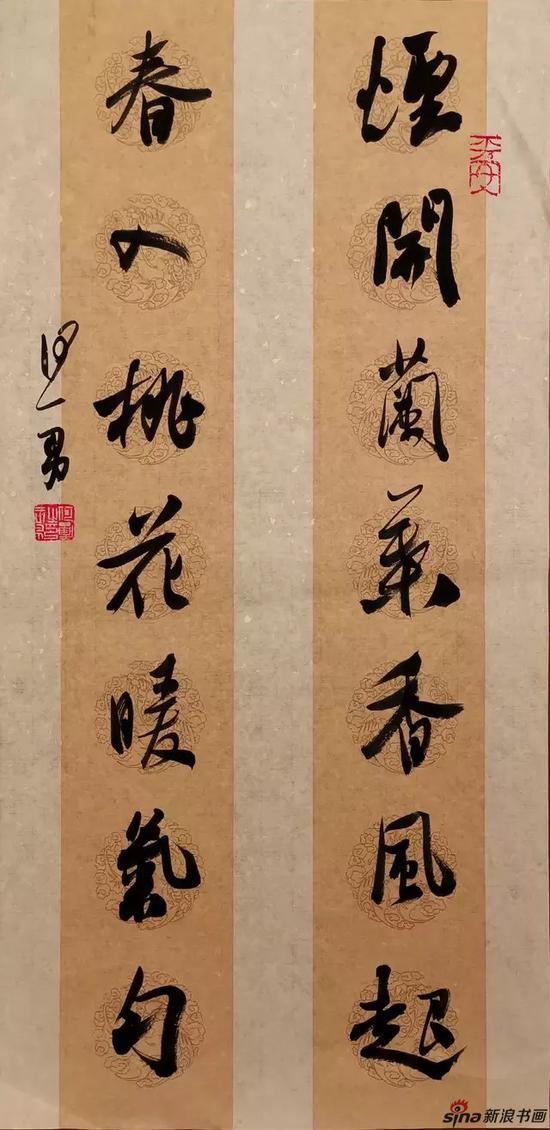 煙開蘭葉香風起
春入桃花暖氣勻
一男
sina新浪书画